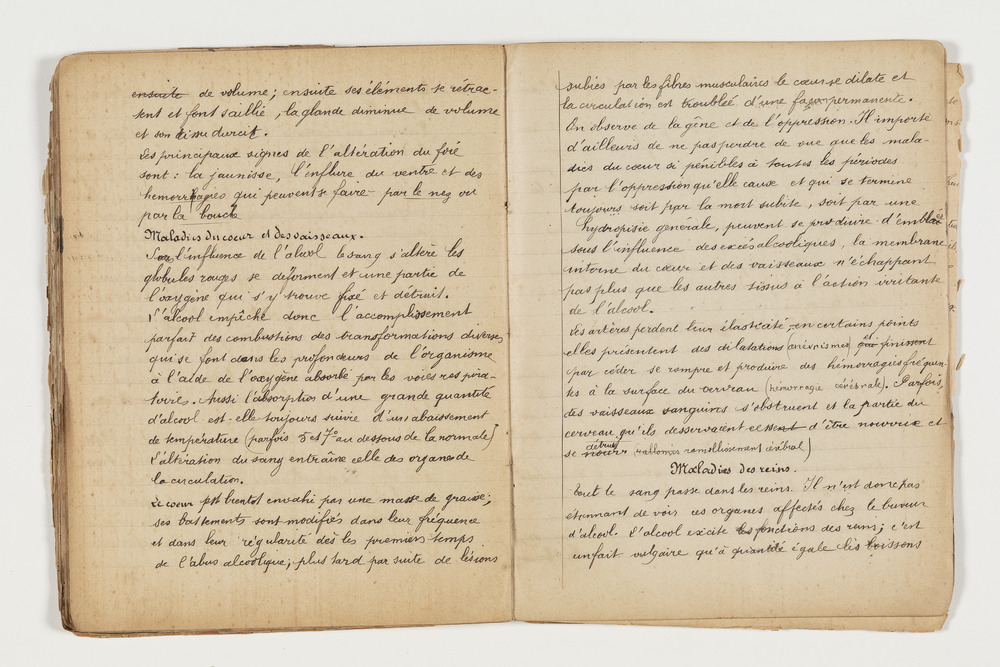 ensuite de volume; ensuite ses éléments se rétrac-
tent et font saillie, la glande diminue de volume
et son tissu durcit.
Les principaux signes de l'altération du foie
sont: la jaunisse, l'enflure du ventre et des
hemorrhagies qui peuvent se faire par le nez ou
par la bouche
Maladies du coeur et des vaisseaux.
Sous l'influence de l'alcool le sang s'altère les
globules rouges se déforment et une partie de
l'oxygène qui s'y trouve fixé et détruit.
L'alcool impêche donc l'accomplissement
parfait des combustions des transformations diverses
qui se font dans les profondeurs de l'organisme
à l'aide de l'oxygène absorbé par les voies respira-
toires. Aussi l'absorption d'une grande quantité
d'alcool est-elle toujours suivie d'un abaissement
de température (parfois 5 et 7° au dessous de la normale)
L'altération du sang entraîne celle des organes de
la circulation.
Le coeur est bientot envahi par une masse de graisse;
ses battements sont modifiés dans leur fréquence
et dans leur régularité dès les premiers temps
de l'abus alcoolique; plus tard par suite de lésions
subies par les fibres musculaires le coeur se dilate et
la circulation est troubleé d'une façon permanente.
On observe de la gêne et de l'oppression. Il importe
d'ailleurs de ne pas perdre de vue que les mala-
dies du coeur si pénibles à toutes les périodes
par l'oppression qu'elle cause et qui se termine
toujours soit par la mort subite, soit par une
hydropisie générale, peuvent se produire d'emblée
sous l'influence des excés alcooliques, la membrane
interne du coeur et des vaisseaux n'échappant
pas plus que les autres tissus à l'action irritante
de l'alcool.
Les artères perdent leur élasticité, en certains points
elles présentent des dilatations (anévrismes) et finissent
par céder se rompre et produire des hémorragies fréquen-
tes à la surface du cerveau (hémorragie cérébrale). Parfois,
des vaisseaux sanguins s'obstruent et la partie du
cerveau qu'ils desservaient cessent d'être nourrue et
se détruit (ramollissement cérébral)
Maladies des reins.
Tout le sang passe dans les reins. Il n'est donc pas
étonnant de voir ces organes affectés chez le buveur
d'alcool. L'alcool excite les fonctions des reins; c'est
un fait vulgaire qu'à quantité égale les boissons